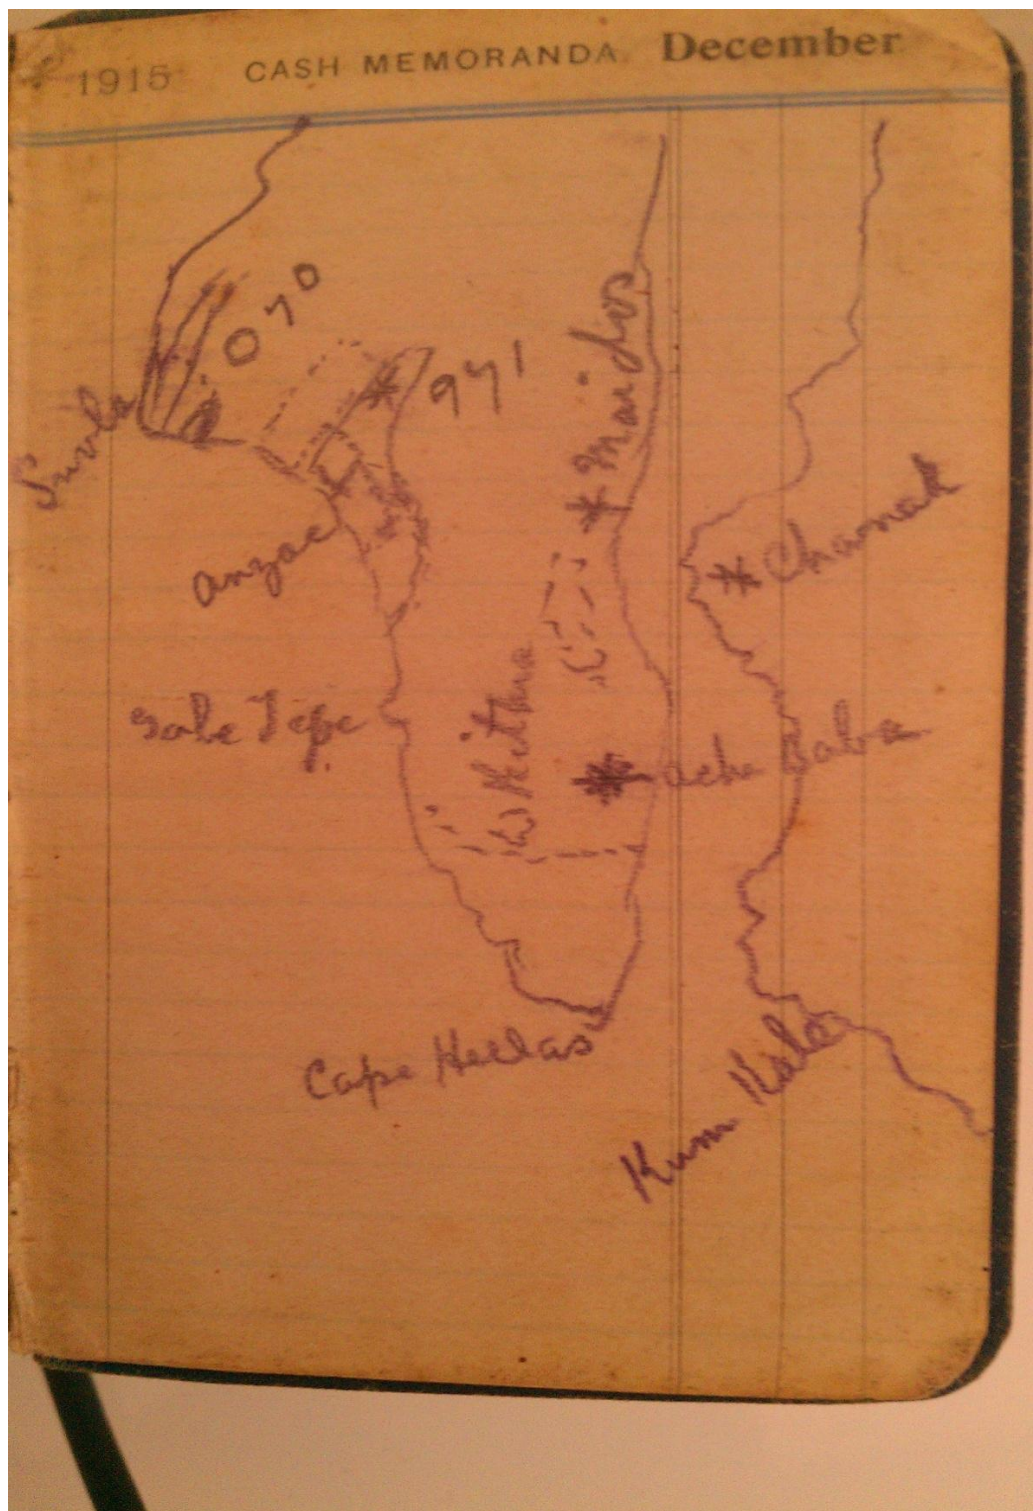 1915 CASH MEMORANDA. December
070
971
Suvla
Maidos
Anzac
Chanak
Gabe Tepe
Krithia
Achi Baba
Cape Hellas
Kum Kale